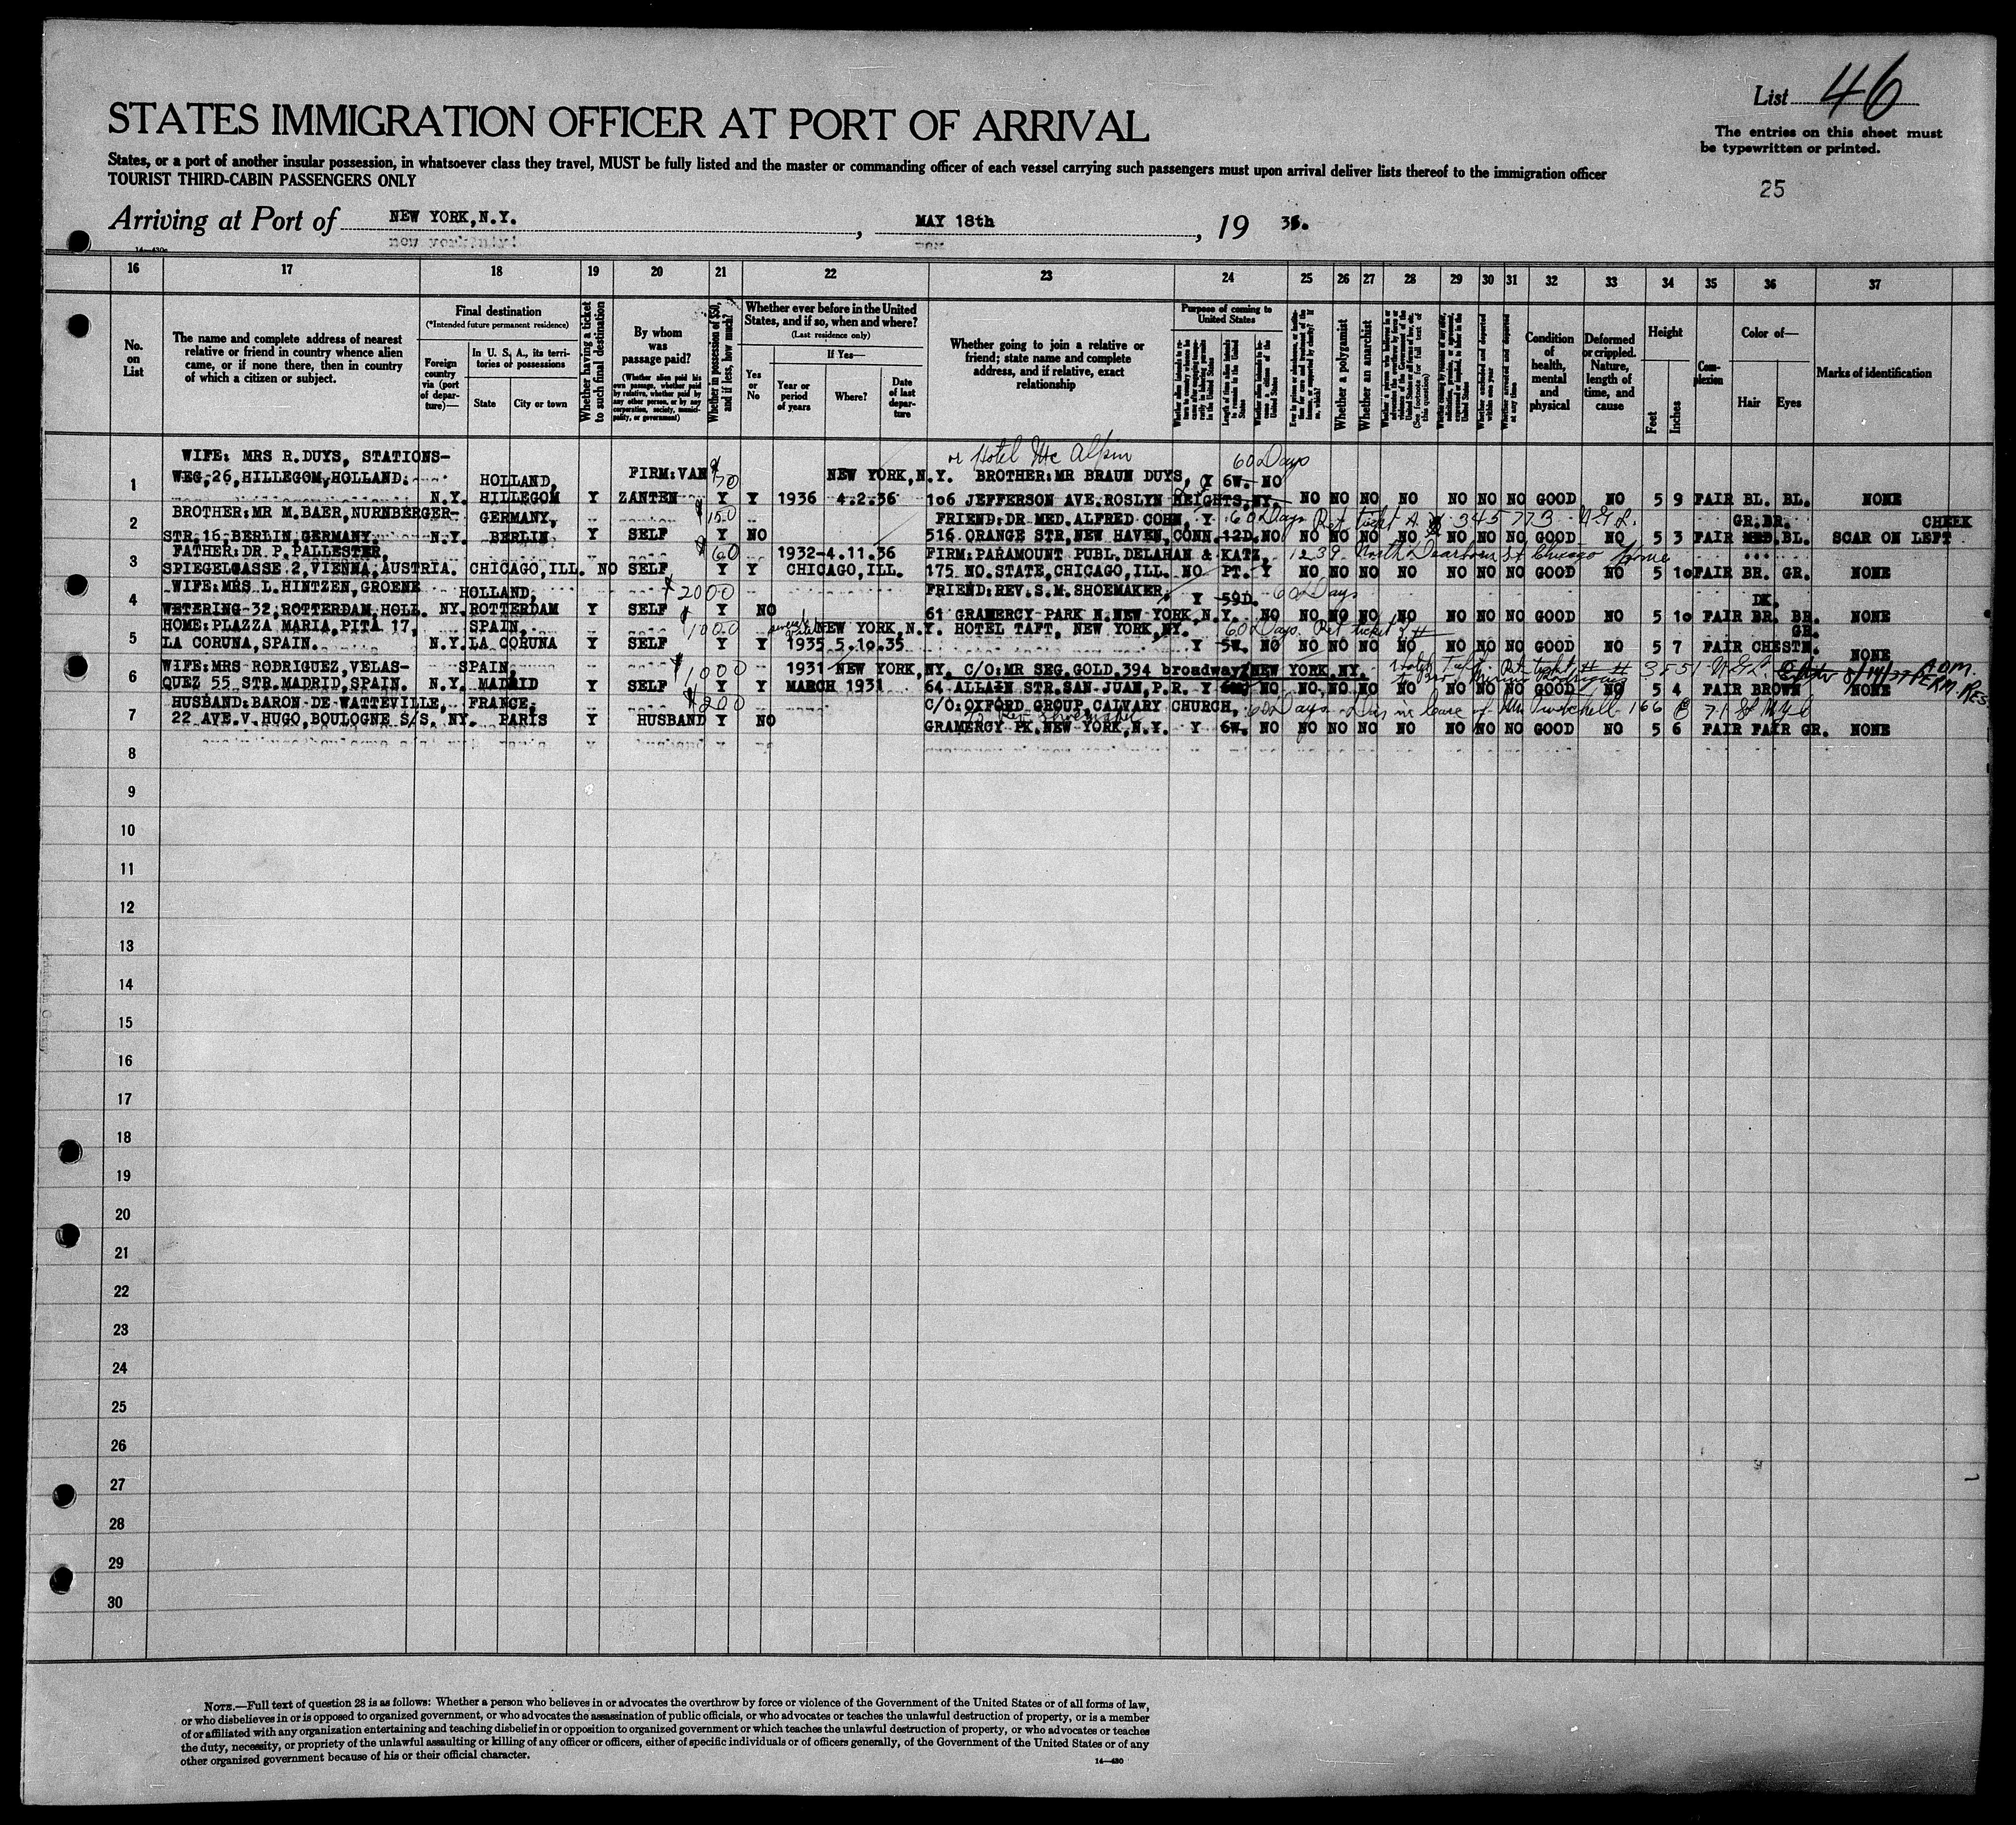 List 46
STATES IMMIGRATION OFFICER AT PORT OF ARRIVAL
The entries on this sheet must
be typewritten or printed.
States, or a port of another insular possession, in whatsoever class they travel, MUST be fully listed and the master or commanding officer of each vessel carrying such passengers must upon arrival deliver lists thereof to the immigration officer
TOURIST THIRD-CABIN PASSENGERS ONLY
25
Arriving at Port of NEW YORK,N.Y. , MAY 18th , 19 36.
16 17 18 19 20 21 22 23 24 25 26 27 28 29 30 31 32 33 34 35 36 37
No. on List
The name and complete address of nearest
relative or friend in country whence alien
came, or if none there, then in country
of which a citizen or subject.
Final destination
(*Intended future permanent residence)
Foreign country via (port of departure)—
In U. S. A., its territories or possessions
State
City or town
Whether having a ticket to such final destination
By whom was passage paid?
(Whether alien paid his own passage, whether paid by relative, whether paid by any other person, or by any corporation, society, municipality, or government)
Whether in possession of $50, and if less, how much?
Whether ever before in the United
States, and if so, when and where?
(Last residence only)
Yes or No
If Yes—
Year or period of years
Where?
Date of last departure
Whether going to join a relative or
friend; state name and complete
address, and if relative, exact
relationship
Purpose of coming to United States
Whether a polygamist
Whether an anarchist
Condition of health, mental and physical
Deformed or crippled. Nature, length of time, and cause
Height
Feet
Inches
Complexion
Color of—
Hair
Eyes
Marks of identification
or Hotel Mc Alpin
WIFE: MRS R.DUYS, STATIONS- 60 Days
1 WEG,26,HILLEGOM,HOLLAND. HOLLAND, FIRM:VAN $70 NEW YORK,N.Y. BROTHER:MR BRAUN DUYS, Y 6W. NO
N.Y. HILLEGOM Y ZANTEN Y Y 1936 4.2.36 106 JEFFERSON AVE.ROSLYN HEIGHTS,NY. NO NO NO NO NO NO NO GOOD NO 5 9 FAIR BL. BL. NONE
2 BROTHER:MR M.BAER,NURNBERGER- GERMANY, $150 FRIEND:DR MED.ALFRED COHN, Y 60 Days Ret ticket 345773 GR.BR. CHEEK
STR.16,BERLIN,GERMANY. N.Y. BERLIN Y SELF Y NO 516 ORANGE STR,NEW HAVEN,CONN. 12D. NO NO NO NO NO NO NO NO GOOD NO 5 3 FAIR MED BL. SCAR ON LEFT
3 FATHER: DR. P. PALLESTER, $60 1932-4.11.36 FIRM:PARAMOUNT PUBL,DELAHAN & KATZ, 1239 North Dearborn St Chicago home
SPIEGELGASSE 2,VIENNA,AUSTRIA. CHICAGO,ILL. NO SELF Y Y CHICAGO,ILL. 175 NO.STATE,CHICAGO,ILL. NO PT. Y NO NO NO NO NO NO NO GOOD NO 5 10 FAIR BR. GR. NONE
4 WIFE:MRS L.HINTZEN,GROENE HOLLAND, $2000 FRIEND:REV.S.M.SHOEMAKER, Y 59D. 60 Days DK.
WETERING-32,ROTTERDAM,HOLL. NY. ROTTERDAM Y SELF Y NO 61 GRAMERCY PARK N.NEW YORK,N.Y. NO NO NO NO NO NO NO NO GOOD NO 5 10 FAIR BR. BR. NONE
5 HOME:PLAZZA MARIA,PITA 17, SPAIN, $1000 NEW YORK,N.Y. HOTEL TAFT, NEW YORK,NY. 60 Days. Ret ticket GR.
LA CORUNA,SPAIN. N.Y. LA CORUNA Y SELF Y Y 1935 5.10.35 Y 5W. NO NO NO NO NO NO NO NO GOOD NO 5 7 FAIR CHESTN. NONE
6 WIFE:MRS RODRIGUEZ,VELAS- SPAIN, $1000 1931 NEW YORK,NY. C/O:MR SEG.GOLD,394 broadway NEW YORK NY. Hotel Taft. Ret ticket ADM. PERM. RES
QUEZ 55 STR.MADRID,SPAIN. N.Y. MADRID Y SELF Y Y MARCH 1931 64 ALLAIN STR.SAN JUAN,P.R. Y NO NO NO NO NO NO NO NO GOOD NO 5 4 FAIR BROWN NONE
7 HUSBAND:BARON DE WATTEVILLE, FRANCE, $200 C/O:OXFORD GROUP,CALVARY CHURCH, 60 Days
22 AVE.V.HUGO,BOULOGNE S/S. NY. PARIS Y HUSBAND Y NO GRAMERCY PK.NEW YORK,N.Y. Y 6W. NO NO NO NO NO NO NO NO GOOD NO 5 6 FAIR FAIR GR. NONE
8
9
10
11
12
13
14
15
16
17
18
19
20
21
22
23
24
25
26
27
28
29
30
NOTE.—Full text of question 28 is as follows: Whether a person who believes in or advocates the overthrow by force or violence of the Government of the United States or of all forms of law,
or who disbelieves in or is opposed to organized government, or who advocates the assassination of public officials, or who advocates or teaches the unlawful destruction of property, or is a member
of or affiliated with any organization entertaining and teaching disbelief in or opposition to organized government or which teaches the unlawful destruction of property, or who advocates or teaches
the duty, necessity, or propriety of the unlawful assaulting or killing of any officer or officers, either of specific individuals or of officers generally, of the Government of the United States or of any
other organized government because of his or their official character.
14—430